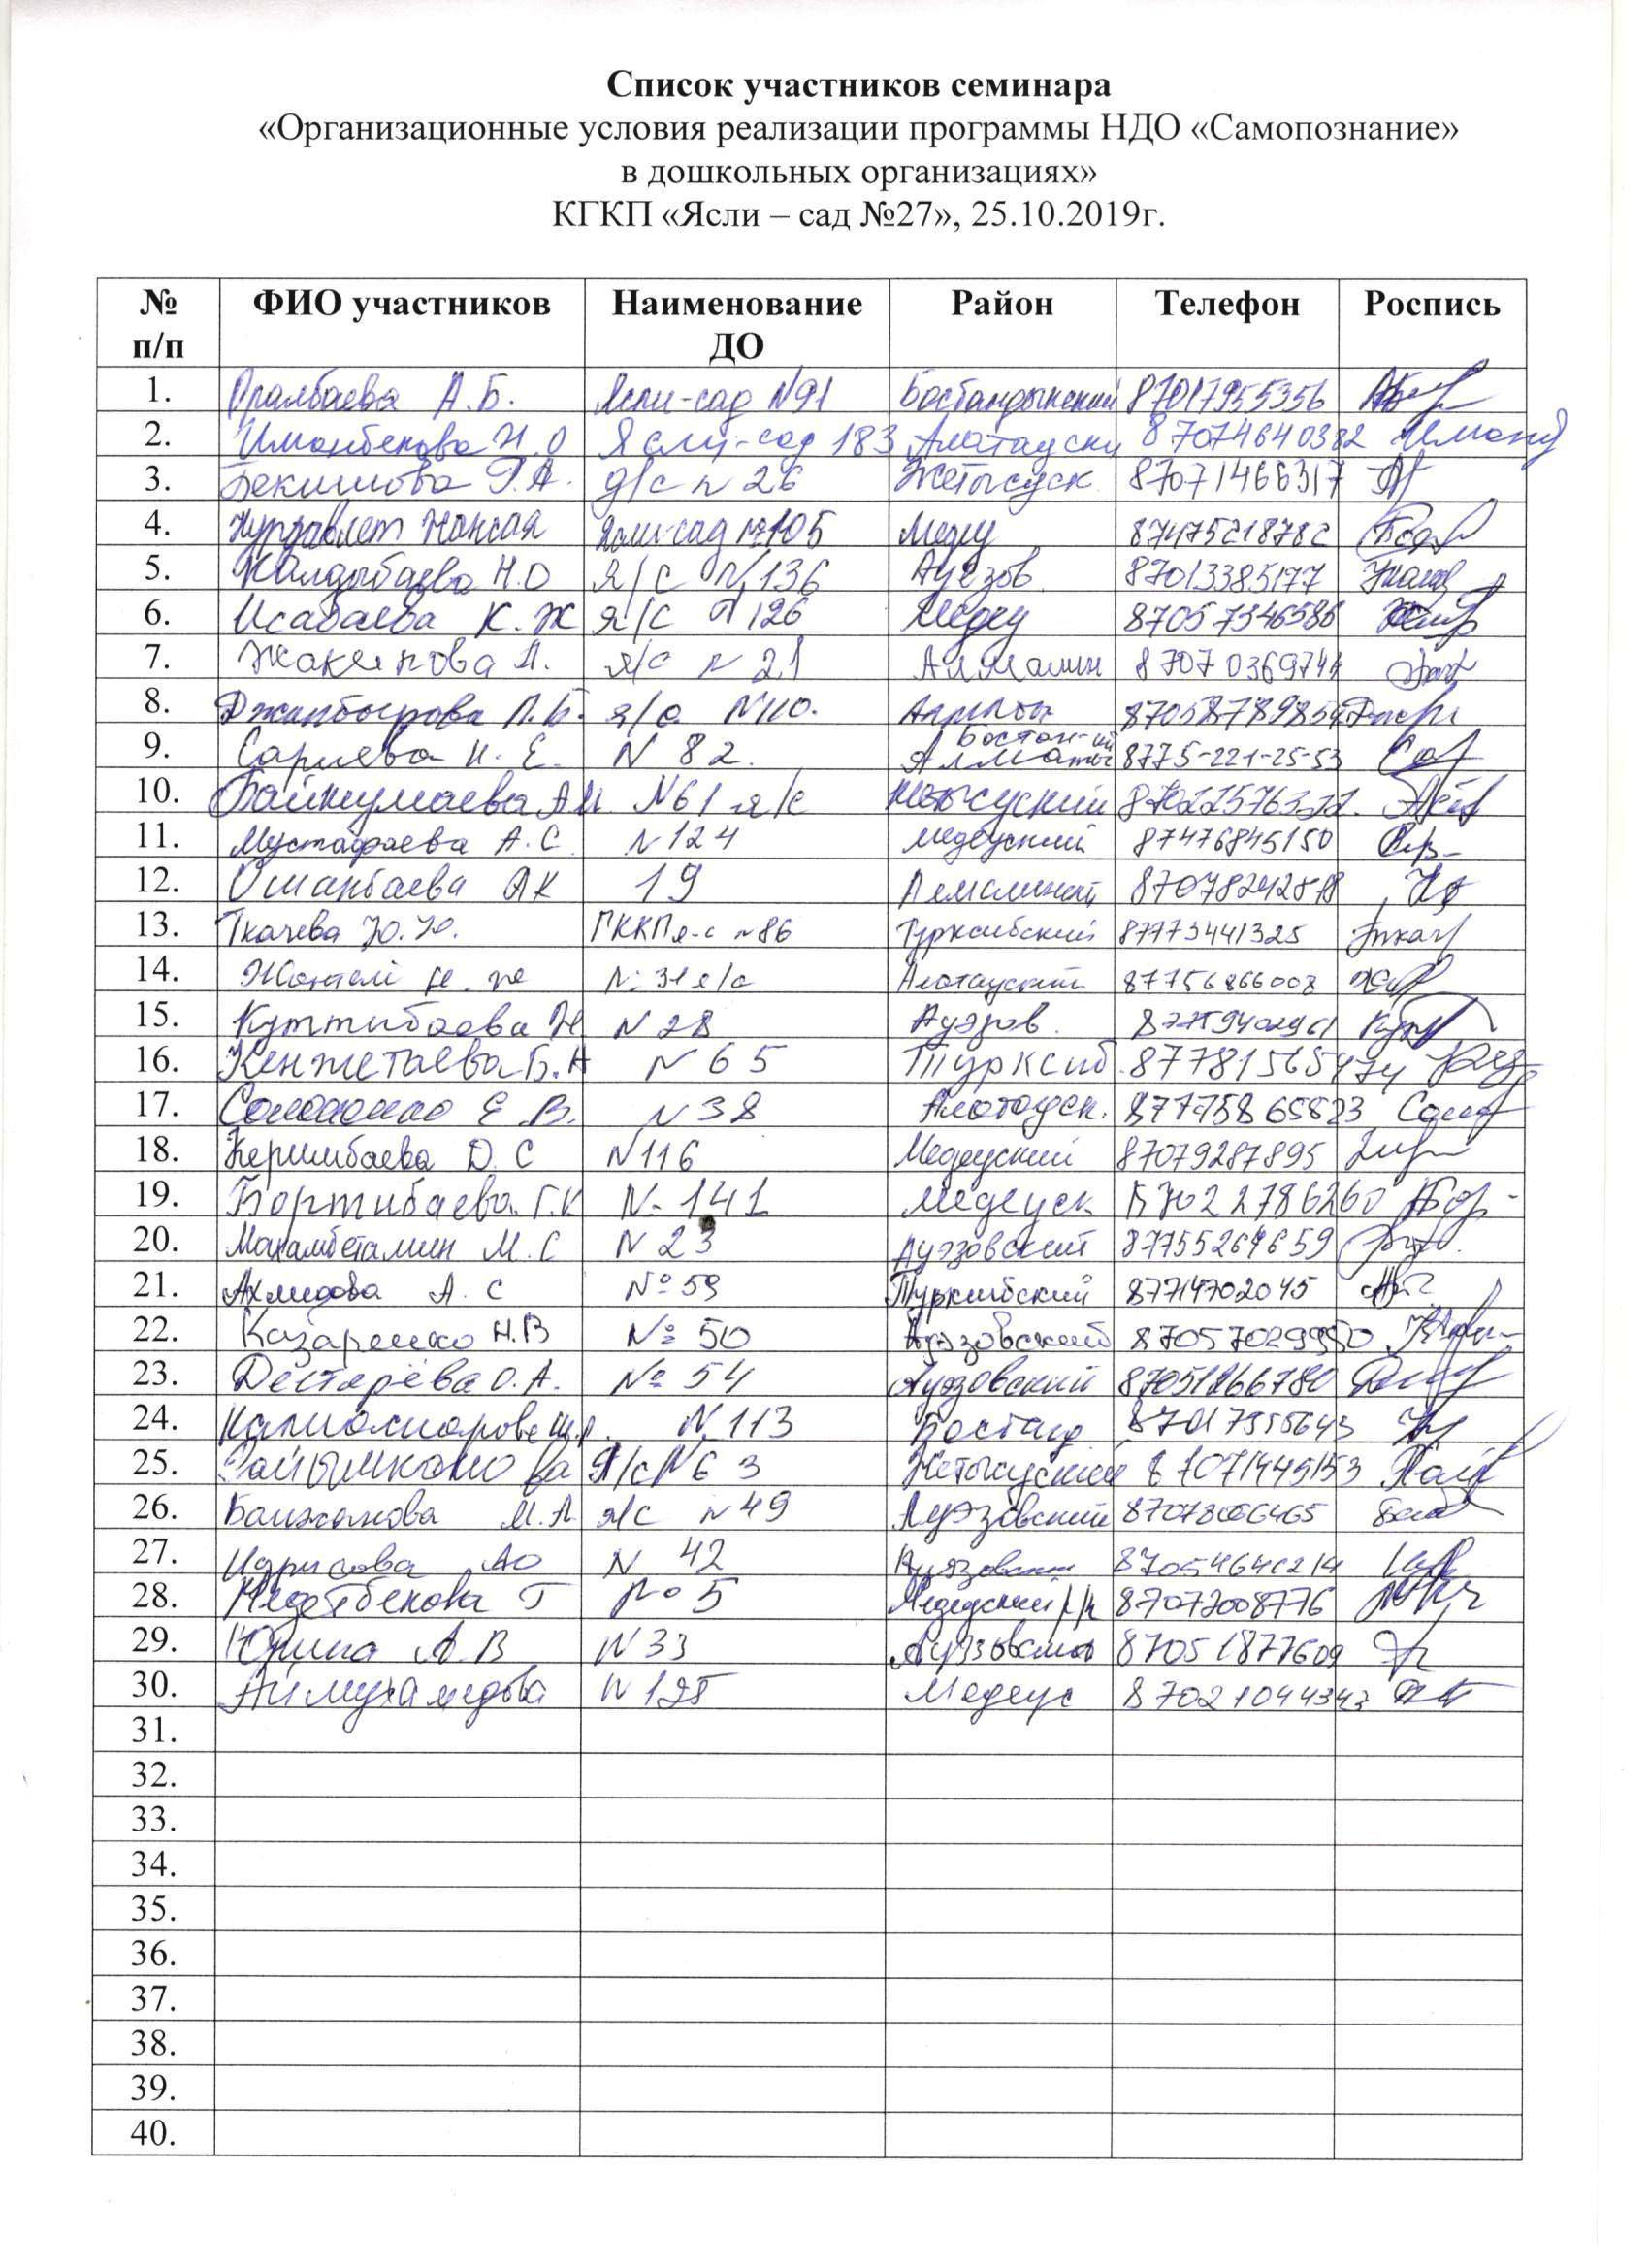 Список участников семинара
«Организационные условия реализации программы НДО «Самопознание»
в дошкольных организациях»
КГКП «Ясли – сад №27», 25.10.2019г.
№ п/п ФИО участников Наименование ДО Район Телефон Роспись
1. Оралбаева А.Б. Ясли-сад N91 Бостандыкский 87017955356
2. Иманбекова Н.О Ясли-сад 183 Алатауски 87074640382
3. Бекишова Г.А. д/с N 26 Жетысуск 87071466317
4. Ясли-сад №105 Медеу
5. Жалдыбаева Н.О Я/С N 136 Ауезов 87013385177
6. Исабаева К.Ж я/с N 126 Медеу 87057346586
7. Жакенова А. я/с N 21 Алмалин 87070369744
8. Джанбырова Л.Б. я/с N110. 87058789854
9. Сариева Н.Е. N 82. Бостан-ий Алматы 8775-221-25-53
10. Байжумаева N61 я/с Жетысуский
11. Мустафаева А.С. N 124 Медеуский 87476845150
12. Оманбаева АК 19
13. Ткачева Ю.Ю. ГККП я-с N86 Турксибский 87773441325
14. N 31 я/с Алатауский 87756866008
15. Куттибаева Н N 28 Ауэзов.
16. Кенжетаева Б.Н N 65 Турксиб. 87781565474
17. Е.В. N 38 Алатауск. 87775865823
18. Керимбаева Д.С N116 Медеуский 87079287895
19. Бортибаева Г.К N. 141 Медеуск 87022786260
20. Махамбеталин М.С N 23 Ауэзовский 87755264659
21. Ахмедова А.С №59 Турксибский 87714702045
22. Казаренко Н.В № 50 Ауэзовский 87057029950
23. Дегтярёва О.А. № 54 Ауэзовский 87051266780
24. N 113 Бостанд. 87017355643
25. Я/с N63 Жетысуский 87071445153
26. Баижанова М.А я/с N 49 Ауэзовский 87078006465
27. Идрисова АО N 42 Ауэзовский 87054640214
28. Медетбекова Г №5 Медеуский р/н 87073008776
29. Юрина А В N33 Ауэзовский 87051877609
30. Алимухамедова N 125 Медеус 87021044343
31.
32.
33.
34.
35.
36.
37.
38.
39.
40.